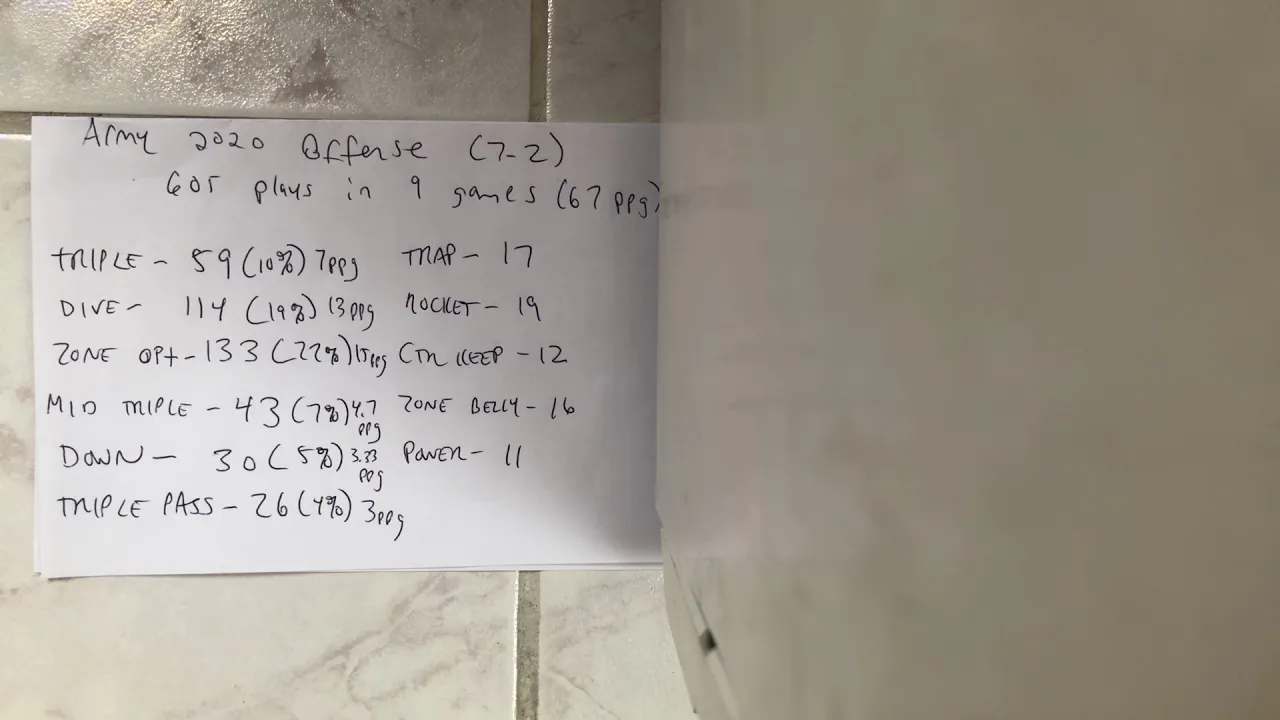 Army 2020 Offense (7-2)
605 plays in 9 games (67 ppg)
TRIPLE - 59 (10%) 7ppg TRAP - 17
DIVE - 114 (19%) 13ppg ROCKET - 19
ZONE OPT - 133 (22%) 15ppg CTR KEEP - 12
MID TRIPLE - 43 (7%) 4.7 ppg ZONE BELLY - 16
DOWN - 30 (5%) 3.33 ppg POWER - 11
TRIPLE PASS - 26 (4%) 3ppg